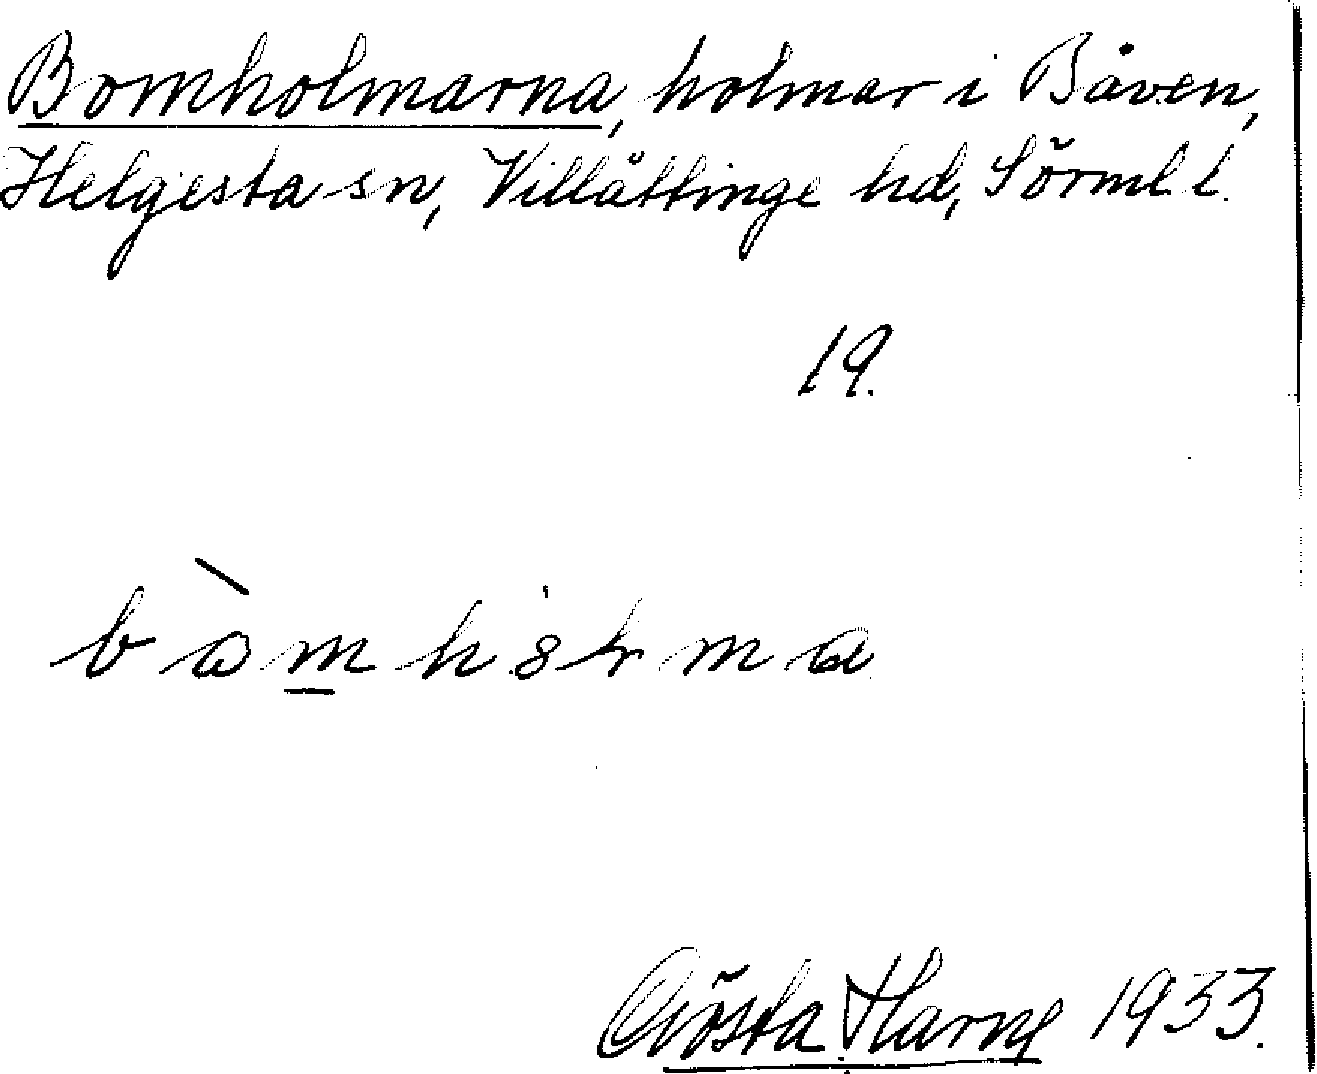 Bomholmarna, holmar i Båven,
Helgesta sn, Villåttinge hd, Sörml. l.
19.
Gösta Harne 1933.